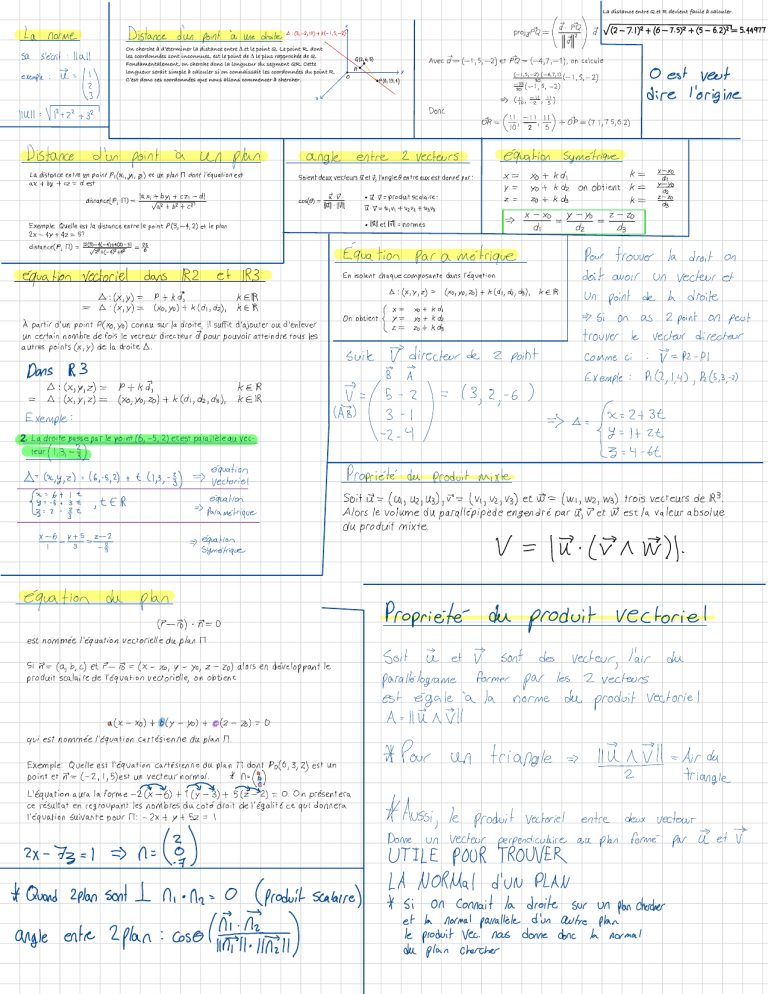 La norme
sa s'écrit : ||a||
exemple : u⃗ = (1 2 3)
||u|| = √1²+2²+3²
Distance d'un point à une droite
On cherche à d'éterminer la distance entre Δ et le point Q. Le point R, dont
les coordonnées sont inconnues, est le point de Δ le plus rapproché de Q.
Fondamentalement, on cherche donc la longueur du segment QR. Cette
longueur serait simple à calculer si on connaissait les coordonnées du point R.
C'est donc ces coordonnées que nous allons commencer à chercher.
Avec d⃗ = (-1, 5, -2) et PQ = (-4, 7, -1), on calcule
Donc
OR = (11/10, -11/2, 11/5) + OP = (7.1, 7.5, 6.2)
La distance entre Q et R devient facile à calculer.
√(2 - 7.1)² + (6 - 7.5)² + (5 - 6.2)² = 5.44977
O est veut
dire l'origine
Distance d'un point à un plan
La distance entre un point P₁(x₁, y₁, z₁) et un plan Π dont l'équation est
ax + by + cz = d est
distance(P, Π) = |ax₁ + by₁ + cz₁ - d| / √a² + b² + c²
Exemple: Quelle est la distance entre le point P(3, -4, 2) et le plan
2x - 4y + 4z = 5?
angle entre 2 vecteurs
Soient deux vecteurs u⃗ et v⃗, l'angle θ entre eux est donné par :
cos(θ) = u⃗ · v⃗ / ||u⃗|| · ||v⃗||
• u⃗ · v⃗ = produit scalaire :
u⃗ · v⃗ = u₁v₁ + u₂v₂ + u₃v₃
• ||u⃗|| et ||v⃗|| = normes
équation symétrique
x = x₀ + k d₁ k = x-x₀/d₁
y = y₀ + k d₂ on obtient k = y-y₀/d₂
z = z₀ + k d₃ k = z-z₀/d₃
⇒ x - x₀/d₁ = y - y₀/d₂ = z - z₀/d₃
équation vectoriel dans R2 et R3
Δ : (x, y) = P + k d⃗, k ∈ ℝ
= Δ : (x, y) = (x₀, y₀) + k (d₁, d₂), k ∈ ℝ
À partir d'un point P(x₀, y₀) connu sur la droite, il suffit d'ajouter ou d'enlever
un certain nombre de fois le vecteur directeur d⃗ pour pouvoir atteindre tous les
autres points (x, y) de la droite Δ.
Dans R3
Δ : (x, y, z) = P + k d⃗, k ∈ ℝ
= Δ : (x, y, z) = (x₀, y₀, z₀) + k (d₁, d₂, d₃), k ∈ ℝ
Exemple :
2. La droite passe par le point (6, -5, 2) et est parallèle au vec-
teur (1, 3, -2/3)
Δ = (x, y, z) = (6, -5, 2) + t (1, 3, -2/3) ⇒ équation
vectoriel
x = 6 + 1 t
y = -5 + 3 t , t ∈ ℝ
z = 2 - 2/3 t
⇒ équation
paramétrique
x-6/1 = y+5/3 = z-2/-2/3 ⇒ équation
symétrique
Équation paramétrique
En isolant chaque composante dans l'équation
Δ : (x, y, z) = (x₀, y₀, z₀) + k (d₁, d₂, d₃), k ∈ ℝ
On obtient { x = x₀ + k d₁
y = y₀ + k d₂
z = z₀ + k d₃
suite V⃗ directeur de 2 point
B⃗ A⃗
V⃗ = (5 - 2
3 - 1
-2 - 4) = (3, 2, -6)
(AB)
Pour trouver la droit on
doit avoir un vecteur et
un point de la droite
⇒ Si on as 2 point on peut
trouver le vecteur directeur
comme ci : V⃗ = P2 - P1
Exemple : P₁(2,1,4), P₂(5,3,-2)
⇒ Δ = { x = 2 + 3t
y = 1 + 2t
z = 4 - 6t
Propriété du produit mixte
Soit u⃗ = (u₁, u₂, u₃), v⃗ = (v₁, v₂, v₃) et w⃗ = (w₁, w₂, w₃) trois vecteurs de ℝ³.
Alors le volume du parallépipède engendré par u⃗, v⃗ et w⃗ est la valeur absolue
du produit mixte.
V = |u⃗ · (v⃗ ∧ w⃗)|.
équation du plan
(r⃗ - r⃗₀) · n⃗ = 0
est nommée l'équation vectorielle du plan Π
Si n⃗ = (a, b, c) et r⃗ - r⃗₀ = (x - x₀, y - y₀, z - z₀) alors en développant le
produit scalaire de l'équation vectorielle, on obtient
a(x - x₀) + b(y - y₀) + c(z - z₀) = 0
qui est nommée l'équation cartésienne du plan Π.
Exemple: Quelle est l'équation cartésienne du plan Π dont P₀(6, 3, 2) est un
point et n⃗ = (-2, 1, 5) est un vecteur normal. * n = (a b c)
L'équation aura la forme -2(x - 6) + 1(y - 3) + 5(z - 2) = 0. On présentera
ce résultat en regroupant les nombres du coté droit de l'égalité ce qui donnera
l'équation suivante pour Π: -2x + y + 5z = 1
2x - 7z = 1 ⇒ n = (2 0 -7)
* Quand 2 plan sont ⊥ n₁ · n₂ = 0 (produit scalaire)
angle entre 2 plan : cosθ (n⃗₁ · n⃗₂ / ||n⃗₁|| · ||n⃗₂||)
Proprieté du produit vectoriel
Soit u⃗ et v⃗ sont des vecteur, l'air du
parallélograme former par les 2 vecteurs
est égale à la norme du produit vectoriel
A = ||u⃗ ∧ v⃗||
* Pour un triangle ⇒ ||u⃗ ∧ v⃗||/2 = Air du
triangle
* Aussi, le produit vectoriel entre deux vecteur
Donne un vecteur perpendiculaire au plan formé par u⃗ et v⃗
UTILE POUR TROUVER
LA NORMAL d'UN PLAN
* si on connait la droite sur un plan chercher
et la normal parallèle d'un autre plan
le produit vec. nous donne donc la normal
du plan chercher